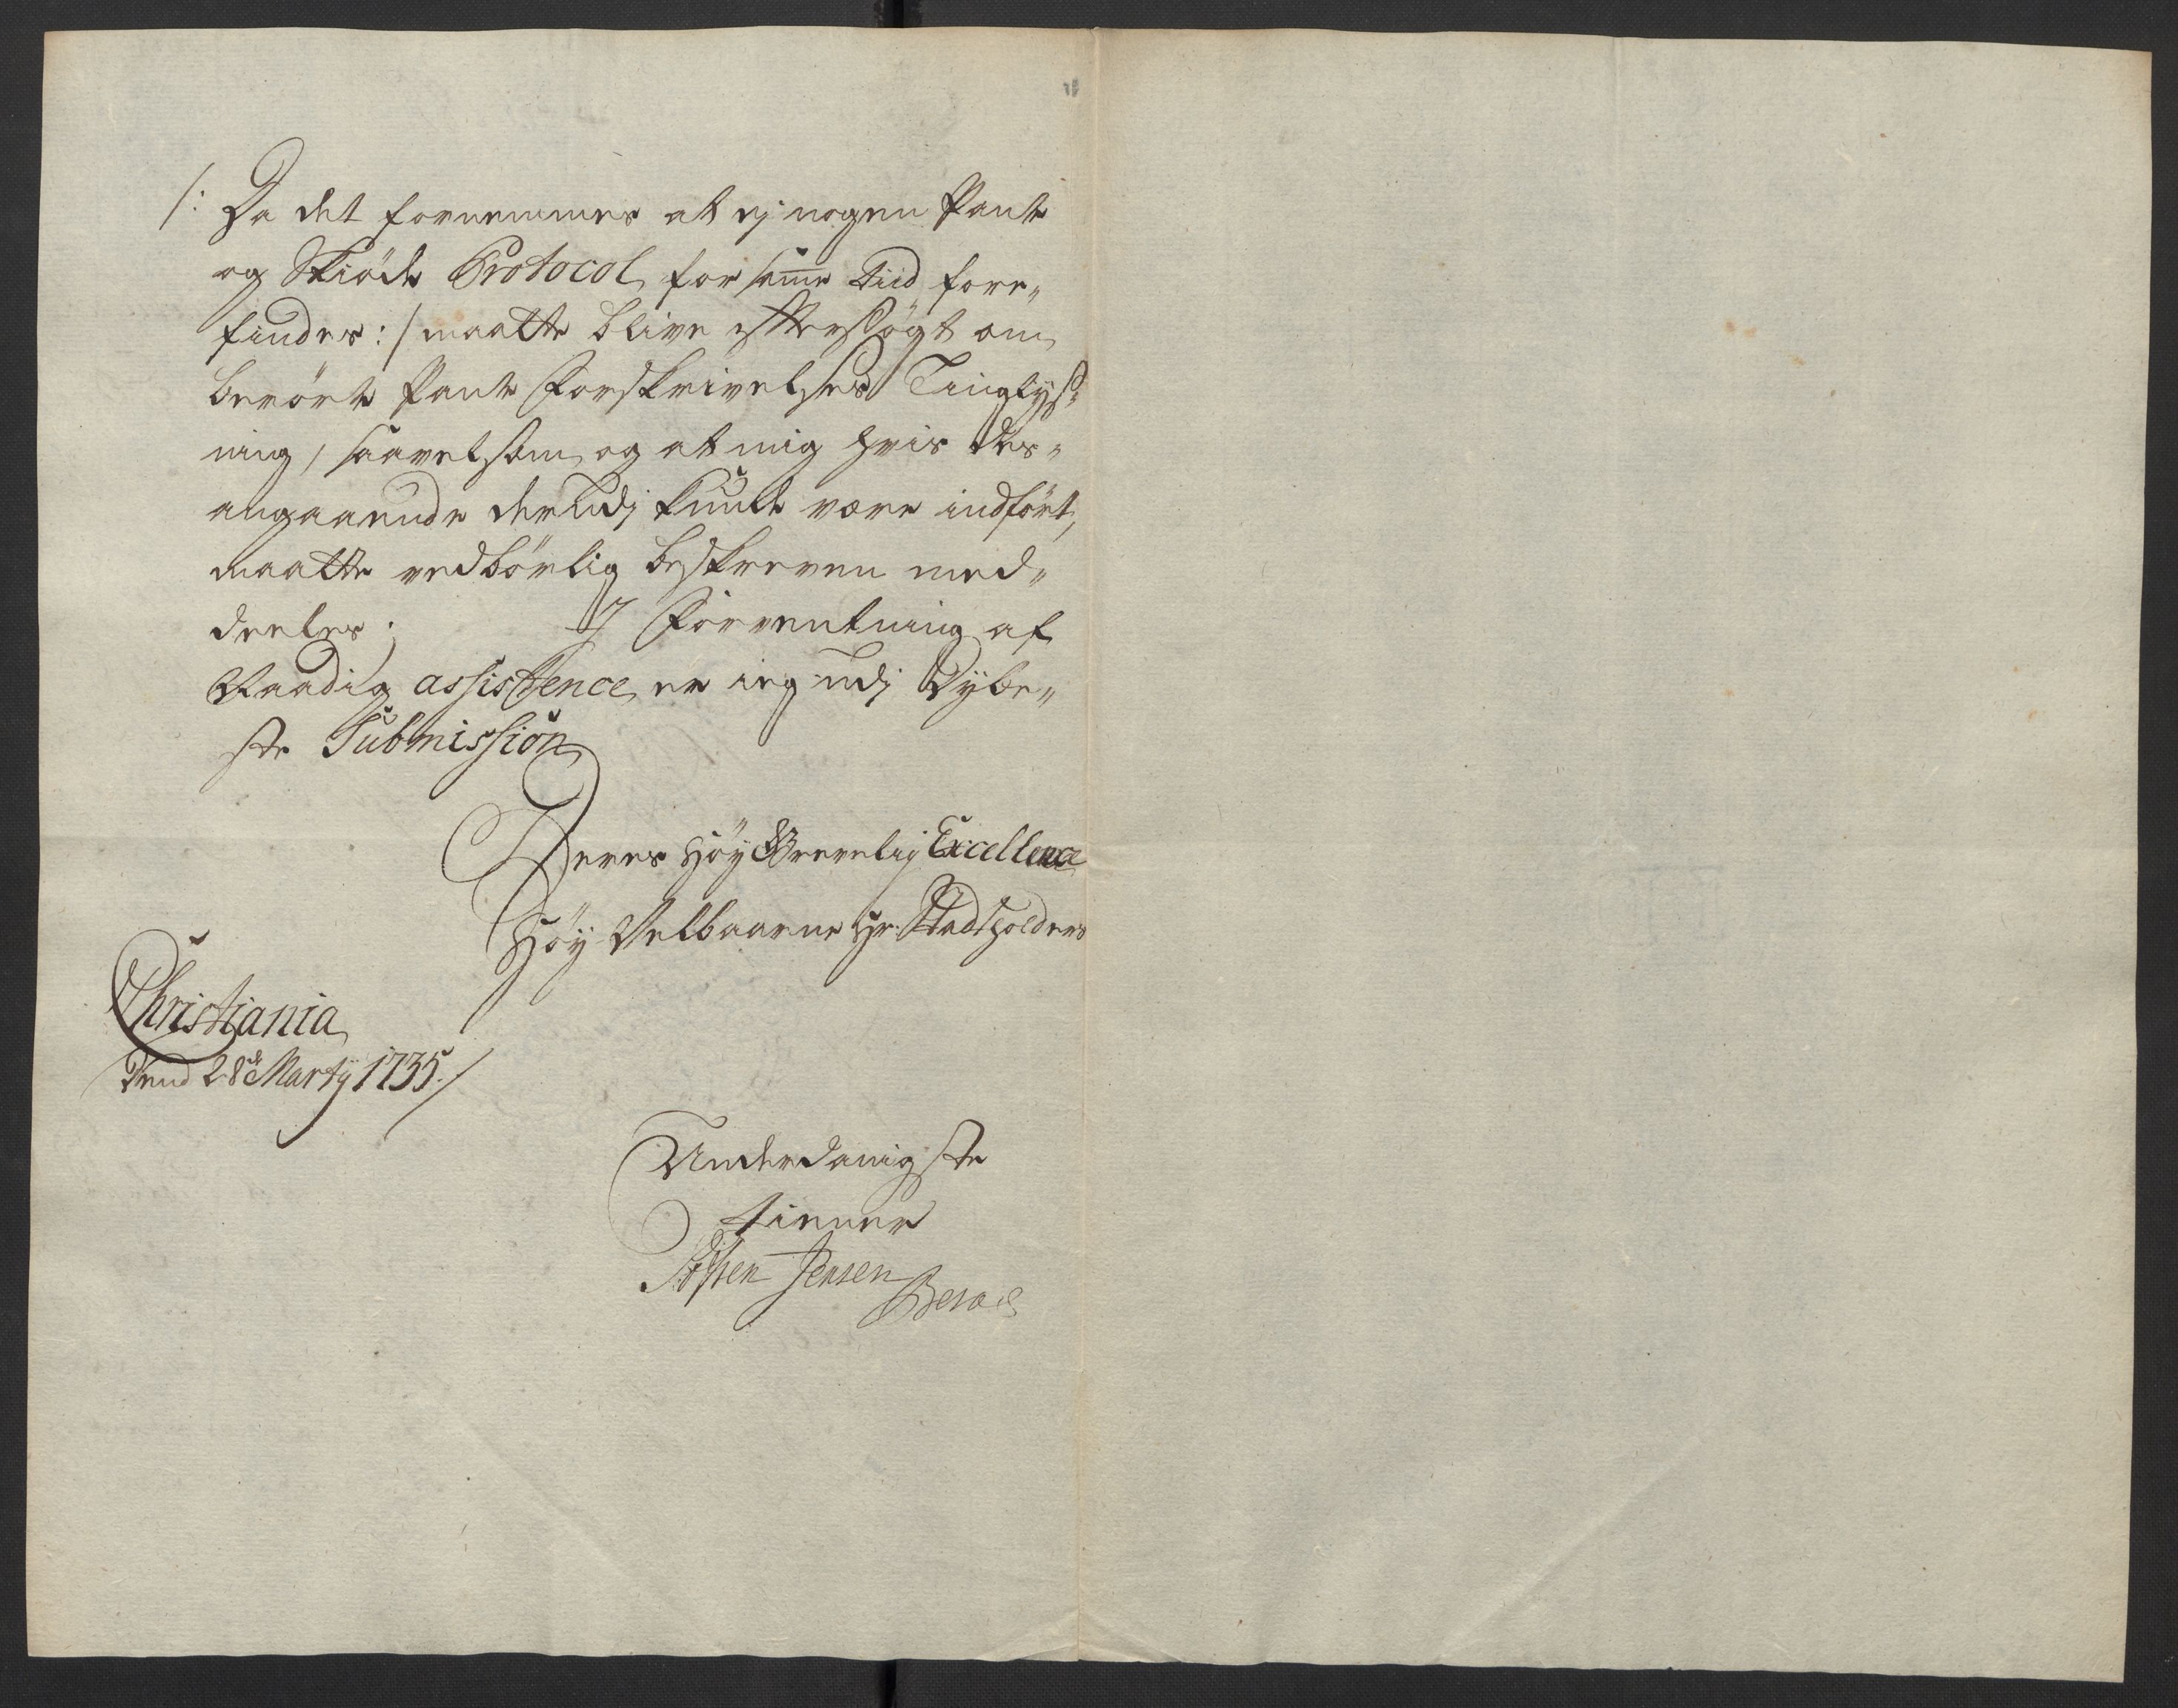 /: Da det fornemmes at ej nogen Pante
og Skiøde Protocol for samme Tiid fore„
findes :/ maatte blive efftersøgt om
berørte Pante Forskrivelses Tinglys„
ning, saavelsom og at mig hvis des„
angaaende derudj kunde være indført,
maatte vedbørlig beskreven med„
deeles; J Forventning af
Naadig assistence er ieg udj Dybe„
ste Submission
Deres Høy Grevelig Excellence
Høy Velbaarne Hr. Stadtholders
Christiania
Dend 28de Martij 1735./
Underdanigste
tienner
Jensen